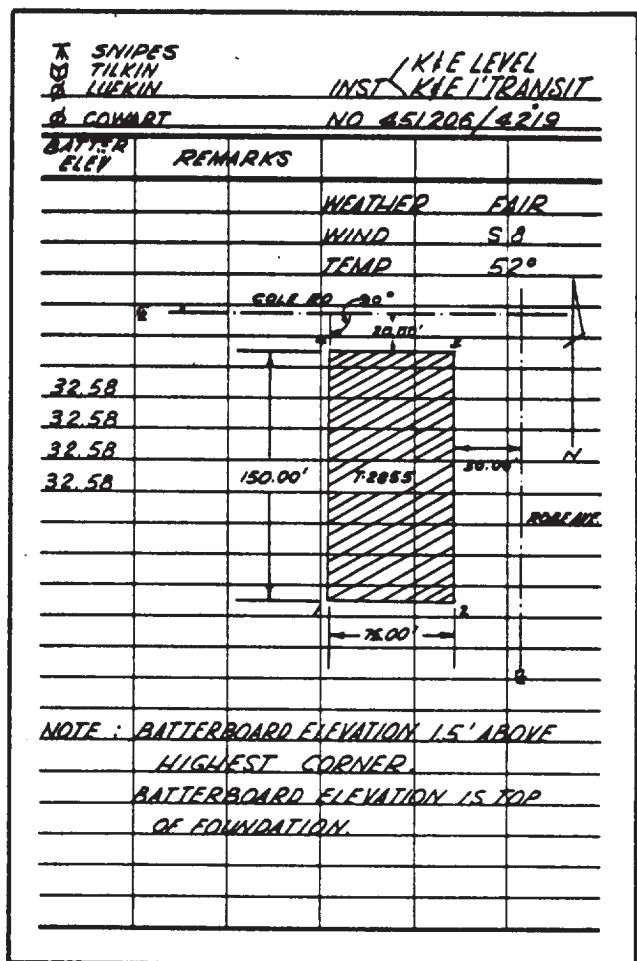 SNIPES
TILKIN
LUFKIN
COWART
INST
K&E LEVEL
K&E 1' TRANSIT
NO 451206/4219
BATTER
ELEV
REMARKS
WEATHER FAIR
WIND S 8
TEMP 52°
COLE RD 90°
20.00'
32.58
32.58
32.58
32.58
150.00'
T-2855
30.00'
N
1 2
75.00'
NOTE : BATTERBOARD ELEVATION 1.5' ABOVE
HIGHEST CORNER.
BATTERBOARD ELEVATION IS TOP
OF FOUNDATION.